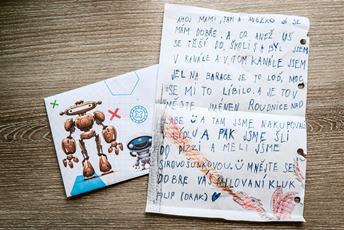 AHOJ MAMI, TATI A ANEŽKO JÁ SE
MÁM DOBŘE. A, CO ANEŽ UŠ
SE TĚŠÍ DO ŠKOLI S A BYL JSEM
V KANÁLE A V TOM KANÁLE JSEM
JEL NA BARACE JE TO LOĎ, MOC
SE MI TO LÍBILO. A JE TO V
MĚSTĚ JMÉNEM ROUDNICE NAD
LABE A TAM JSME NAKUPOVAL
ŠKOLU A PAK JSME ŠLI
DO PIZZI A MĚLI JSME
SÍROVOŠUNKOVOU. MNĚJTE SE
DOBŘE VÁŠ MILOVANÍ KLUK
FILIP (DRAK)